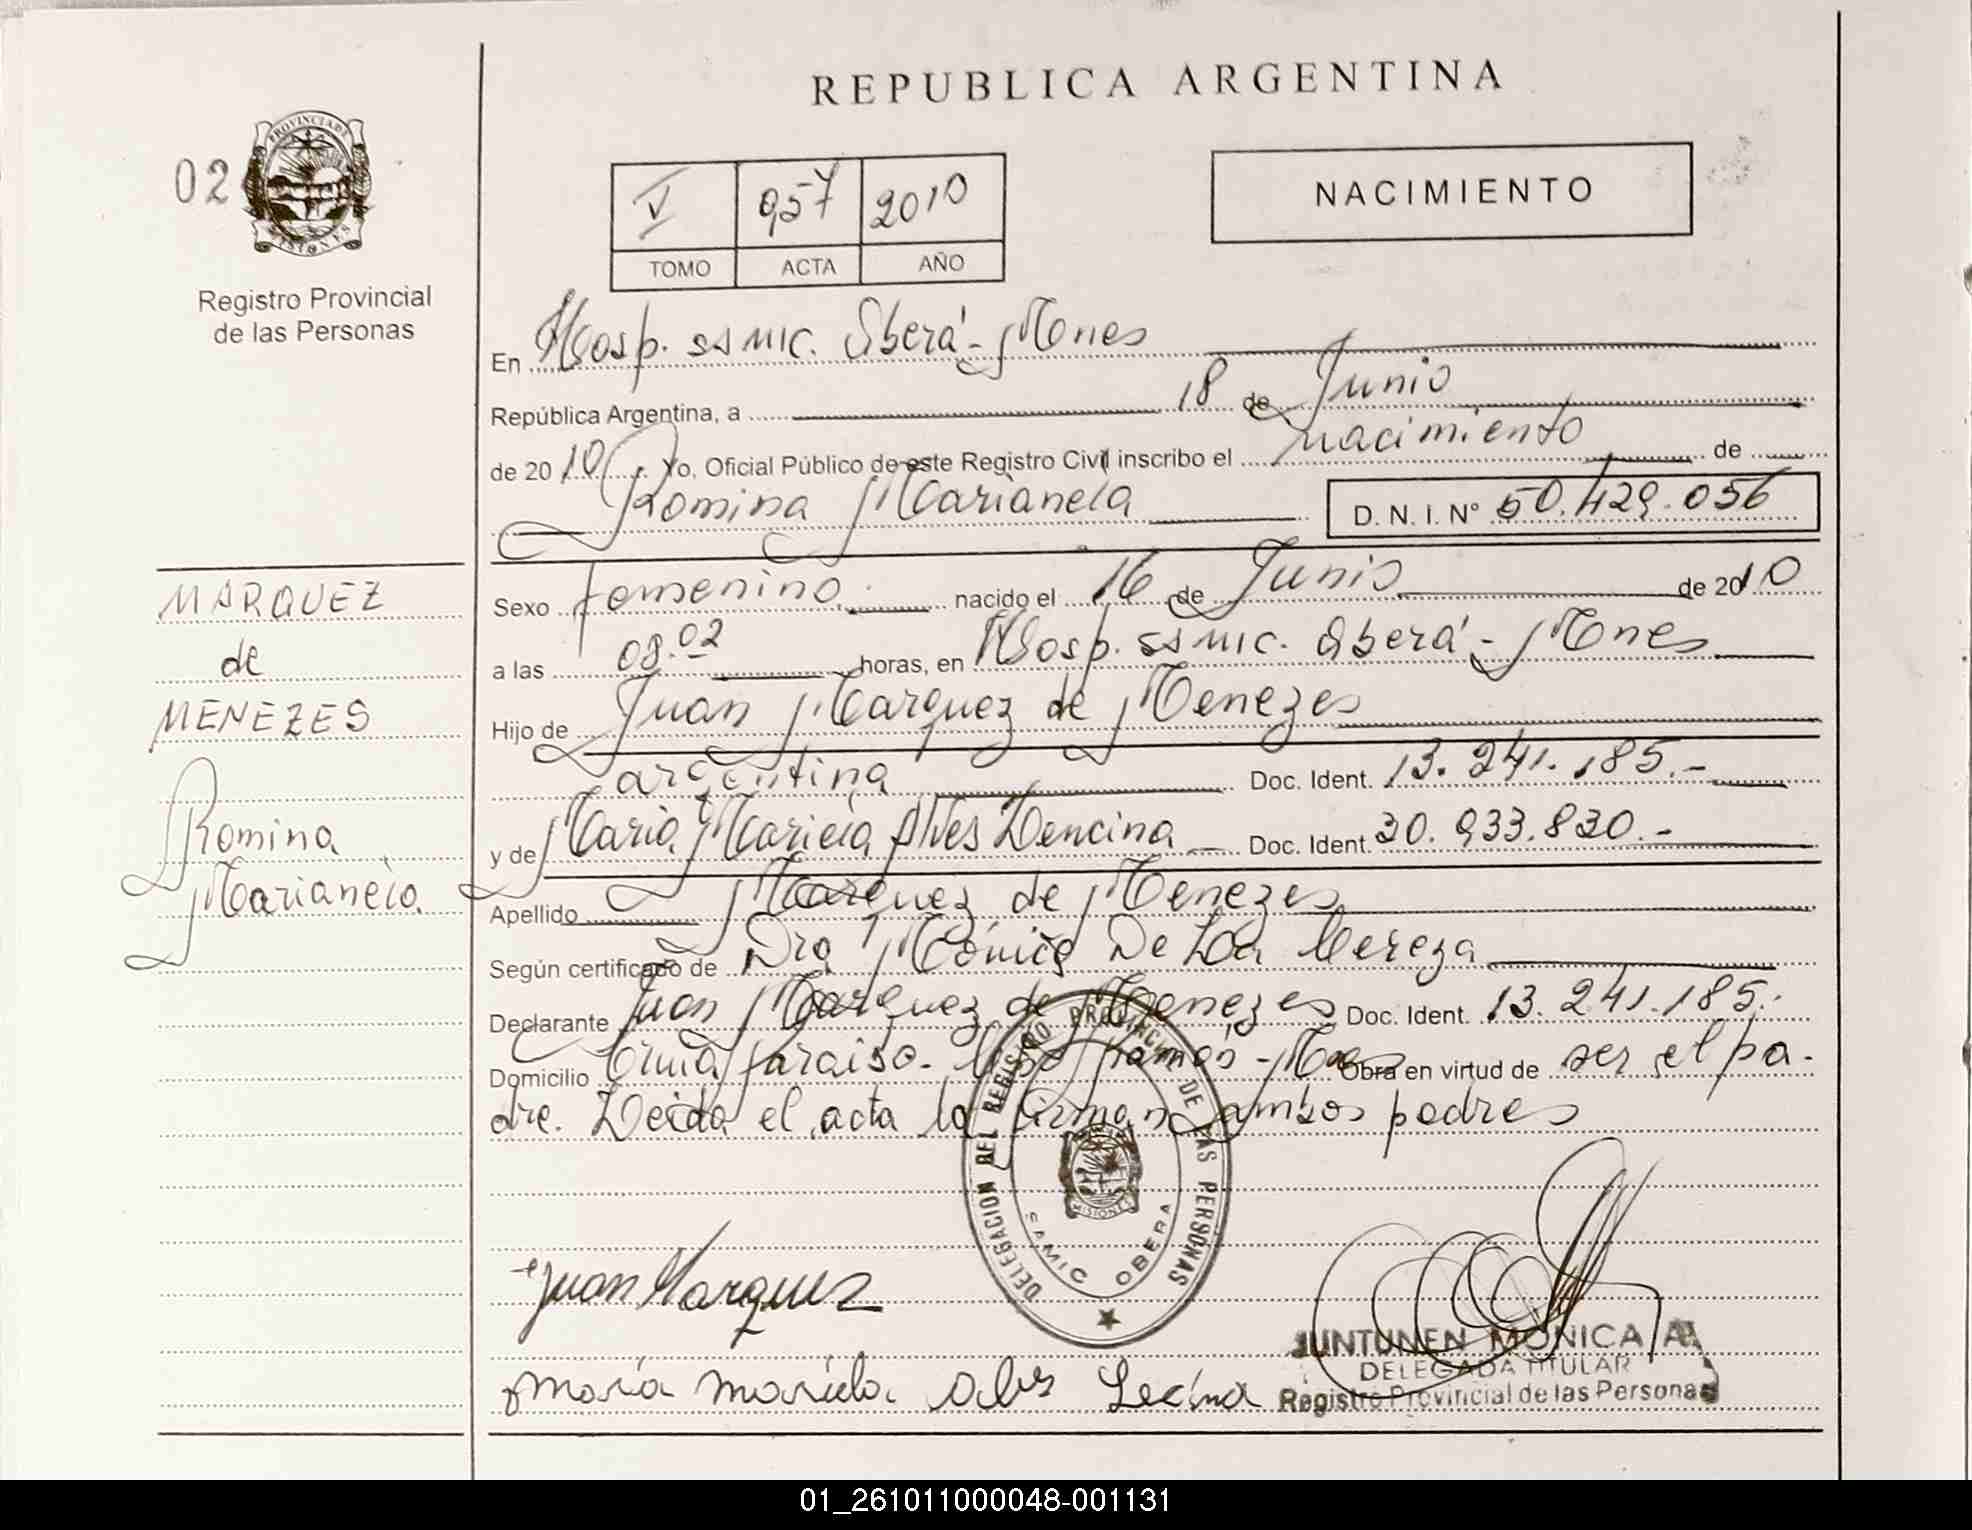 REPUBLICA ARGENTINA
02
PROVINCIA DE MISIONES
Registro Provincial
de las Personas
V 957 2010
TOMO ACTA AÑO
NACIMIENTO
En Hosp. SAMIC. Oberá - Mnes
República Argentina, a 18 de Junio
de 2010. Yo, Oficial Público de este Registro Civil inscribo el nacimiento de
Romina Marianela D. N. I. N° 50.429.056
Sexo femenino nacido el 16 de Junio de 2010
a las 08.02 horas, en Hosp. SAMIC. Oberá - Mnes
Hijo de Juan Marquez de Menezes
argentina Doc. Ident. 13.241.185.-
y de María Mariela Alves Lencina Doc. Ident. 30.933.830.-
Apellido Marquez de Menezes
Según certificado de Dra Mónica De La Cereza
Declarante Juan Marquez de Menezes Doc. Ident. 13.241.185.
Domicilio Paraiso - Ramón - Obra en virtud de ser el pa-
dre. Leida el acta la firman ambos padres
MARQUEZ
de
MENEZES
Romina
Marianela
DELEGACION DEL REGISTRO PROVINCIAL DE LAS PERSONAS
MISIONES
SAMIC OBERA
Juan Marquez
maría mariela alves Lecina
JUNTUNEN MONICA A.
DELEGADA TITULAR
Registro Provincial de las Personas
01_261011000048-001131